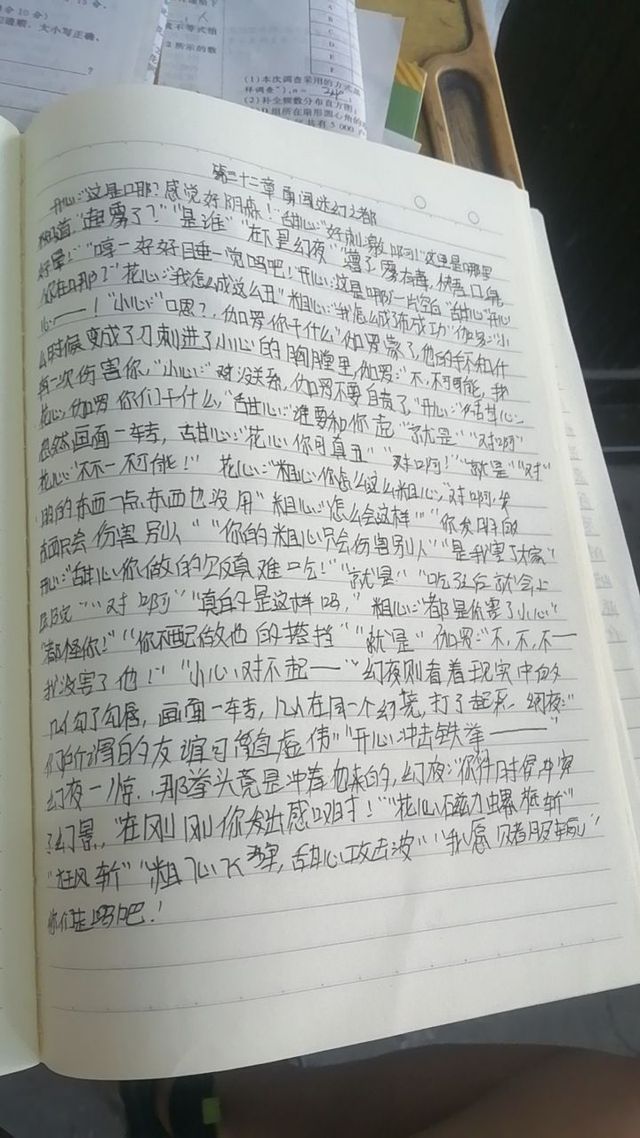 分 10 分)
大小写正确。
?
成不等式组
2 所示的数
A
B
C
D
E
F
(1)本次调查采用的方式是
样调查"),n=
(2)补全频数分布直方图;
组所在扇形圆心角的
共有 5 000
第三十二章 勇闯迷幻之都
开心:"这是哪?感觉好阴森!"甜心:"好刺激啊!这里是哪里
"起雾了?""是谁""在下是幻夜""遭了雾有毒,快捂口鼻,
好晕!""哼—好好睡一觉吧!开心:这是哪一片空白"甜心"开心
你在哪?"花心:"我怎么成这么丑"粗心:"我怎么成功"伽罗:"小
心——!"小心:"嗯?,伽罗你干什么"伽罗蒙了,他的手不知什
么时候变成了刀刺进了小心的胸膛里,伽罗:"不,不可能,我
再一次伤害你,"小心:"对没关系,伽罗不要自责了,"开心:
花心,伽罗你们干什么,"甜心:"谁要和你一起""就是""对啊"
忽然画面一转,甜心:"花心你可真丑""对啊!""就是""对"
花心:"不不—不可能!" 花心:"粗心你怎么这么粗心,"对啊,发
明的东西一点,东西也没用"粗心:"怎么会这样""你发明的
东西只会伤害别人""你的粗心只会伤害别人""是我害了大家"
开心:"甜心你做的饭真难吃!""就是""吃了后就会上
医院""对啊""真的是这样吗,"粗心:"都是你害了小心"
"都怪你!""你不配做他的搭挡""就是"伽罗:"不,不,不—
我没害了他!""小心,对不起——"幻夜则看着现实中的
几人勾了勾唇,画面一转,几人在同一个幻境,打了起来 幻夜:"
们所谓的友谊可简直虚伟"开心:冲击铁拳———"
幻夜一惊,那拳头竟是冲着他来的,幻夜:你什么时侯冲突
了幻景,"在刚刚你发出感叹时!""花心磁力螺旋斩"
"狂风斩""粗心飞弹,甜心攻击波""我愿赌服输,"
你们走吧!